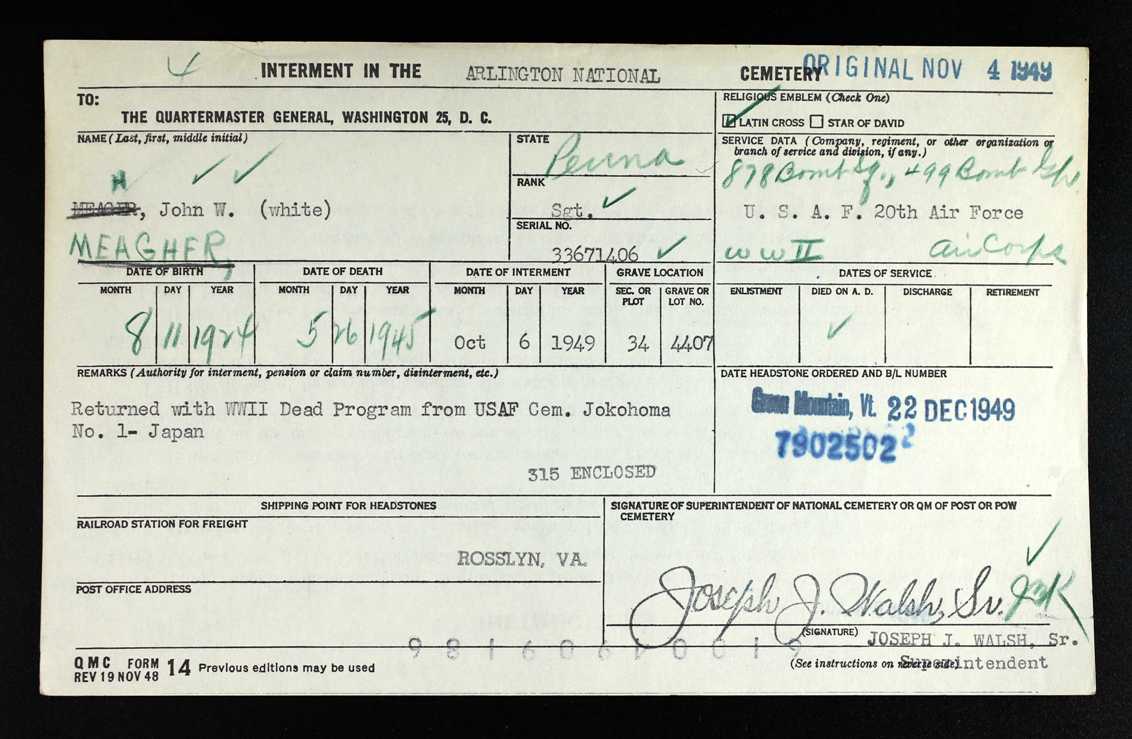 4 INTERMENT IN THE ARLINGTON NATIONAL CEMETERY ORIGINAL NOV 4 1949
TO:
THE QUARTERMASTER GENERAL, WASHINGTON 25, D. C.
RELIGIOUS EMBLEM (Check One)
LATIN CROSS STAR OF DAVID
NAME (Last, first, middle initial)
H
MEAGER, John W. (white)
MEAGHER,
STATE
Penna
RANK
Sgt.
SERIAL NO.
33671406
SERVICE DATA (Company, regiment, or other organization or
branch of service and division, if any.)
878 Bomb Sq., 499 Bomb Gp.
U. S. A. F. 20th Air Force
WW II Air Corps
DATE OF BIRTH DATE OF DEATH DATE OF INTERMENT GRAVE LOCATION DATES OF SERVICE
MONTH DAY YEAR MONTH DAY YEAR MONTH DAY YEAR SEC. OR PLOT GRAVE OR LOT NO. ENLISTMENT DIED ON A. D. DISCHARGE RETIREMENT
8 11 1924 5 26 1945 Oct 6 1949 34 4407
REMARKS (Authority for interment, pension or claim number, disinterment, etc.)
Returned with WWII Dead Program from USAF Cem. Jokohoma
No. 1- Japan
315 ENCLOSED
DATE HEADSTONE ORDERED AND B/L NUMBER
Green Mountain, Vt. 22 DEC 1949
7902502
SHIPPING POINT FOR HEADSTONES
RAILROAD STATION FOR FREIGHT
ROSSLYN, VA.
POST OFFICE ADDRESS
SIGNATURE OF SUPERINTENDENT OF NATIONAL CEMETERY OR QM OF POST OR POW
CEMETERY
Joseph J. Walsh, Sr.
(SIGNATURE) JOSEPH J. WALSH, Sr.
Superintendent
(See instructions on reverse side)
QMC FORM 14 Previous editions may be used
REV 19 NOV 48